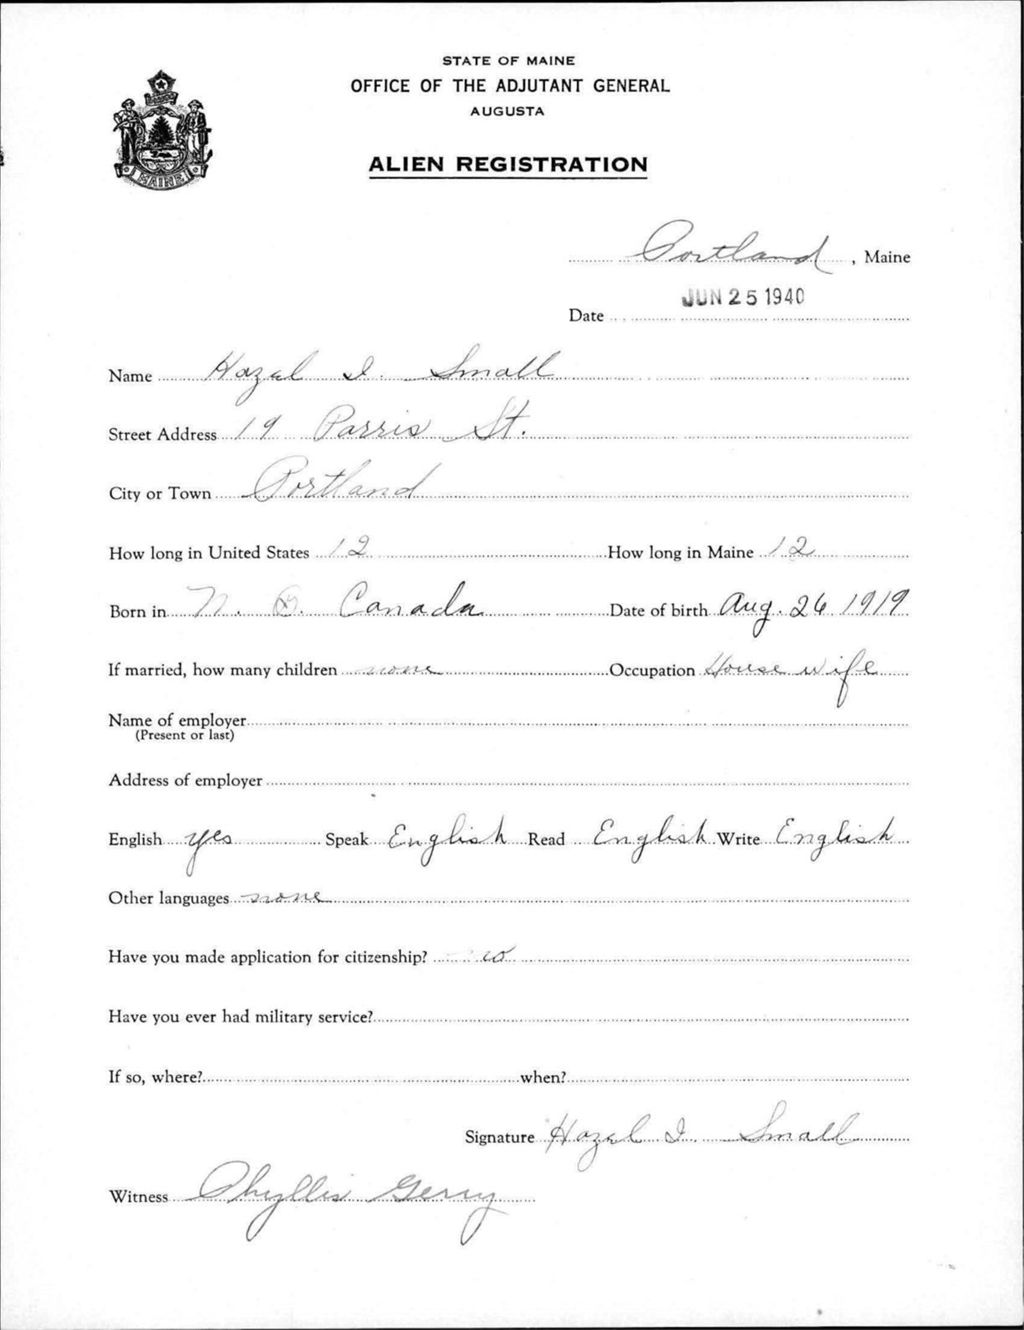 STATE OF MAINE
OFFICE OF THE ADJUTANT GENERAL
AUGUSTA
ALIEN REGISTRATION
MAINE
Portland, Maine
JUN 25 1940
Date
Name Hazel I. Small
Street Address 19 Parris St.
City or Town Portland
How long in United States 12 How long in Maine 12
Born in N. B. Canada Date of birth Aug. 26 1919
If married, how many children none Occupation House wife
Name of employer
(Present or last)
Address of employer
English yes Speak English Read English Write English
Other languages none
Have you made application for citizenship? no
Have you ever had military service?
If so, where? when?
Signature Hazel I. Small
Witness Phyllis Gerry